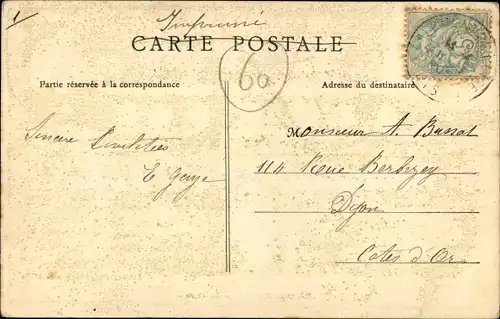 1
Imprimé
CARTE POSTALE
60
Partie réservée à la correspondance
Adresse du destinataire
Sincère
E
Monsieur A.
114 Rue Berbizey
Dijon
Cotes d'Or